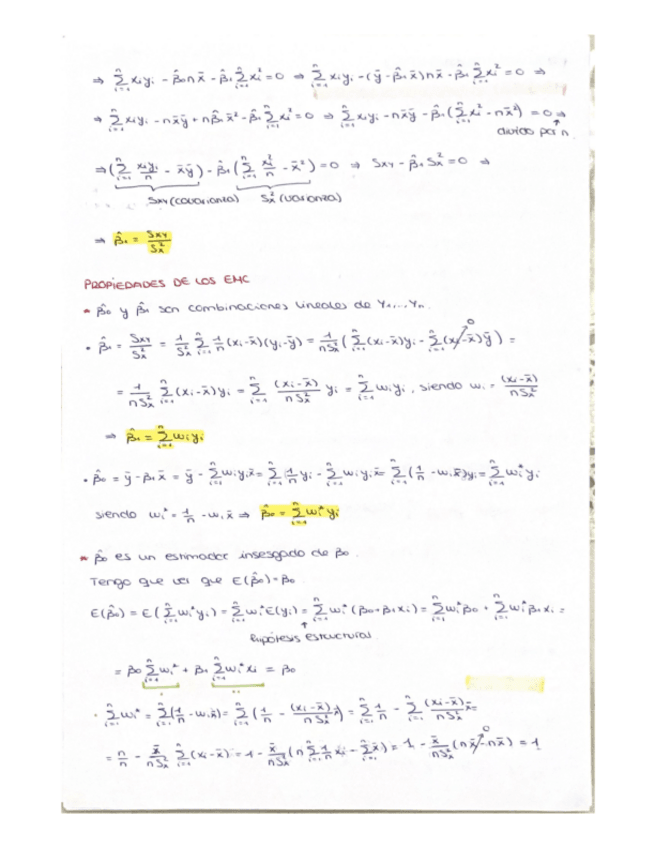 ⇒ Σⁿᵢ₌₁ xᵢyᵢ - β̂₀nx̄ - β̂₁Σⁿᵢ₌₁xᵢ² = 0 ⇒ Σⁿᵢ₌₁ xᵢyᵢ - (ȳ - β̂₁x̄)nx̄ - β̂₁Σⁿᵢ₌₁xᵢ² = 0 ⇒
⇒ Σⁿᵢ₌₁ xᵢyᵢ - nx̄ȳ + nβ̂₁x̄² - β̂₁Σⁿᵢ₌₁xᵢ² = 0 ⇒ Σⁿᵢ₌₁ xᵢyᵢ - nx̄ȳ - β̂₁(Σⁿᵢ₌₁xᵢ² - nx̄²) = 0 ⇒
divido por n
⇒ (Σⁿᵢ₌₁ xᵢyᵢ/n - x̄ȳ) - β̂₁(Σⁿᵢ₌₁ xᵢ²/n - x̄²) = 0 ⇒ Sxy - β̂₁Sx² = 0 ⇒
Sxy (covarianza) Sx² (varianza)
⇒ β̂₁ = Sxy/Sx²
PROPIEDADES DE LOS EMC
* β̂₀ y β̂₁ son combinaciones lineales de Y₁,...,Yn.
• β̂₁ = Sxy/Sx² = 1/Sx² Σⁿᵢ₌₁ 1/n (xᵢ-x̄)(yᵢ-ȳ) = 1/nSx² (Σⁿᵢ₌₁(xᵢ-x̄)yᵢ - Σⁿᵢ₌₁(xᵢ-x̄)ȳ) = 0
= 1/nSx² Σⁿᵢ₌₁(xᵢ-x̄)yᵢ = Σⁿᵢ₌₁ (xᵢ-x̄)/nSx² yᵢ = Σⁿᵢ₌₁wᵢyᵢ, siendo wᵢ = (xᵢ-x̄)/nSx²
⇒ β̂₁ = Σⁿᵢ₌₁wᵢyᵢ
• β̂₀ = ȳ - β̂₁x̄ = ȳ - Σⁿᵢ₌₁wᵢyᵢx̄ = Σⁿᵢ₌₁ 1/n yᵢ - Σⁿᵢ₌₁wᵢyᵢx̄ = Σⁿᵢ₌₁(1/n - wᵢx̄)yᵢ = Σⁿᵢ₌₁wᵢ*yᵢ
siendo wᵢ* = 1/n - wᵢx̄ ⇒ β̂₀ = Σⁿᵢ₌₁wᵢ*yᵢ
* β̂₀ es un estimador insesgado de β₀.
Tengo que ver que E(β̂₀) = β₀
E(β̂₀) = E(Σⁿᵢ₌₁wᵢ*yᵢ) = Σⁿᵢ₌₁wᵢ*E(yᵢ) = Σⁿᵢ₌₁wᵢ*(β₀+β₁xᵢ) = Σⁿᵢ₌₁wᵢ*β₀ + Σⁿᵢ₌₁wᵢ*β₁xᵢ =
hipótesis estructural
= β₀Σⁿᵢ₌₁wᵢ* + β₁Σⁿᵢ₌₁wᵢ*xᵢ = β₀
· Σⁿᵢ₌₁wᵢ* = Σⁿᵢ₌₁(1/n - wᵢx̄) = Σⁿᵢ₌₁(1/n - (xᵢ-x̄)/nSx² x̄) = Σⁿᵢ₌₁ 1/n - Σⁿᵢ₌₁ (xᵢ-x̄)/nSx² x̄ =
= n/n - x̄/nSx² Σⁿᵢ₌₁(xᵢ-x̄) = 1 - x̄/nSx² (nΣⁿᵢ₌₁ 1/n xᵢ - Σⁿᵢ₌₁x̄) = 1 - x̄/nSx² (nx̄-nx̄) = 1 0